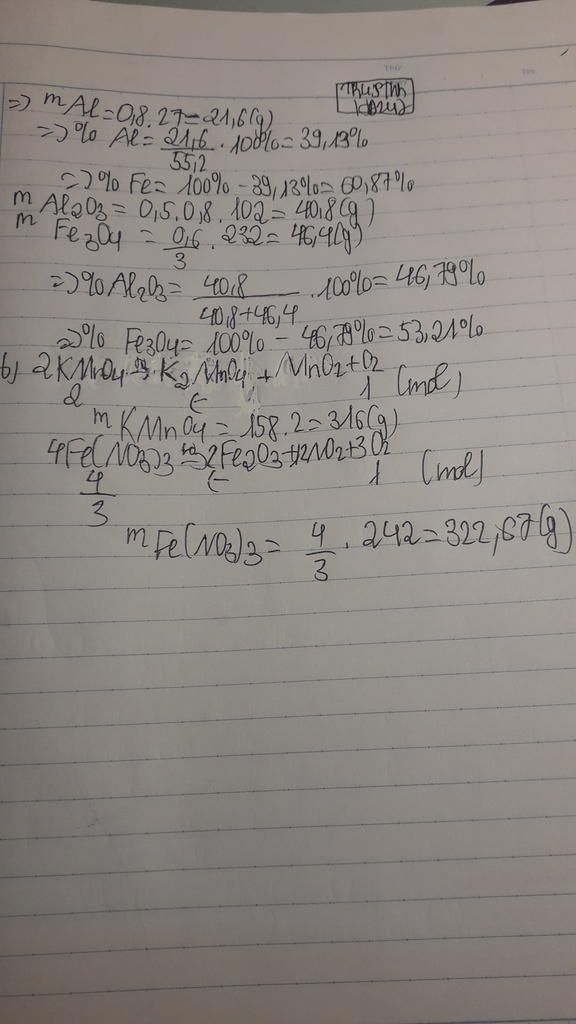 => mAl=0,8.27=21,6(g)
=> % Al= 21,6/55,2 . 100% = 39,13%
=> % Fe= 100% - 39,13% = 60,87%
m Al2O3 = 0,5.0,8.102 = 40,8(g)
m Fe3O4 = 0,6/3 . 232 = 46,4(g)
=> % Al2O3 = 40,8/40,8+46,4 . 100% = 46,79%
=> % Fe3O4 = 100% - 46,79% = 53,21%
b) 2KMnO4 → K2MnO4 + MnO2 + O2
2 ← 1 (mol)
m KMnO4 = 158.2 = 316(g)
4Fe(NO3)3 → 2Fe2O3 + 12NO2 + 3O2
4/3 ← 1 (mol)
m Fe(NO3)3 = 4/3 . 242 = 322,67(g)